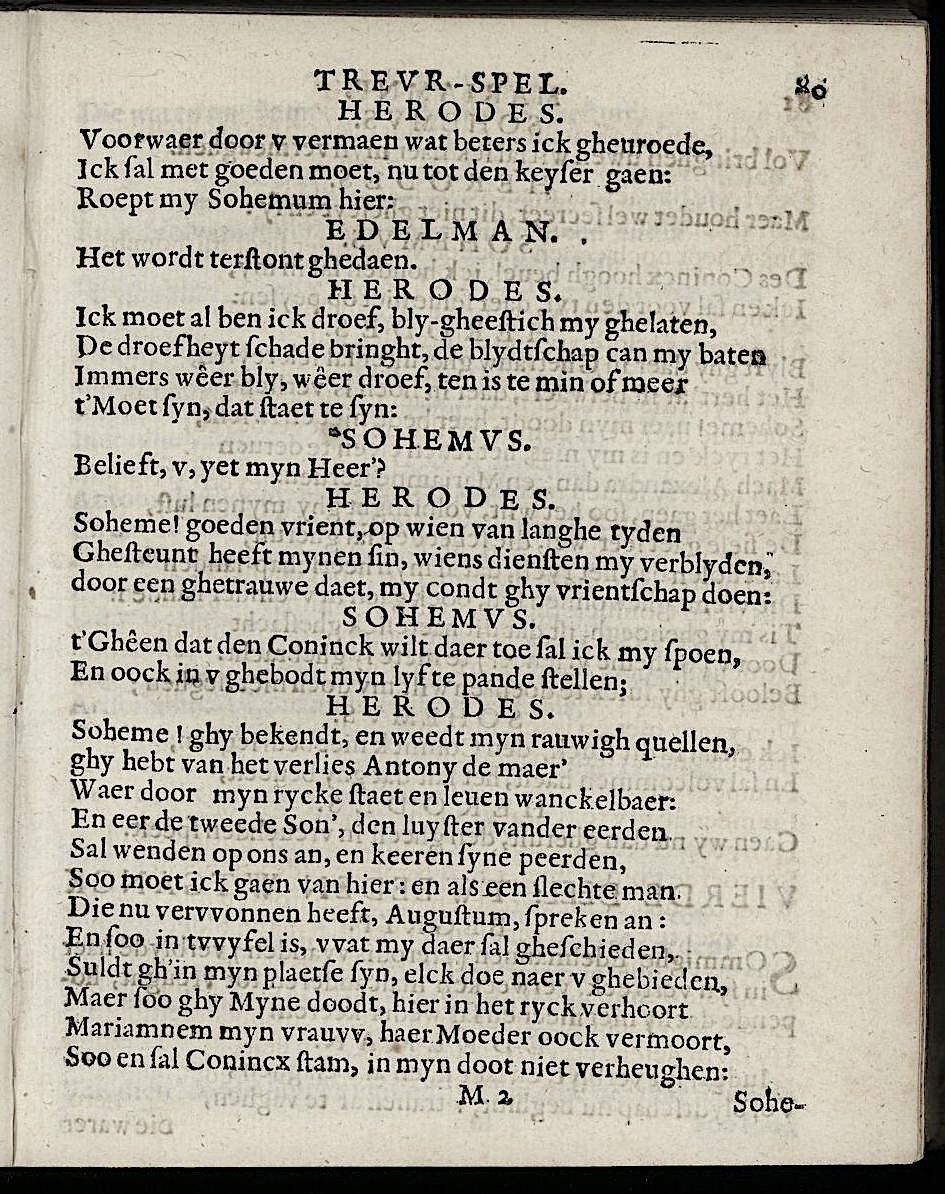 TREVR-SPEL. 80
HERODES.
Voorwaer door v vermaen wat beters ick gheuroede,
Ick ſal met goeden moet, nu tot den keyſer gaen:
Roept my Sohemum hier:
EDELMAN.
Het wordt terſtont ghedaen.
HERODES.
Ick moet al ben ick droef, bly-gheeſtich my ghelaten,
De droefheyt ſchade bringht, de blydtſchap can my baten
Immers wêer bly, wêer droef, ten is te min of meer
t'Moet ſyn, dat ſtaet te ſyn:
SOHEMVS.
Belieft, v, yet myn Heer'?
HERODES.
Soheme! goeden vrient, op wien van langhe tyden
Gheſteunt heeft mynen ſin, wiens dienſten my verblyden,
door een ghetrauwe daet, my condt ghy vrientſchap doen:
SOHEMVS.
t'Ghêen dat den Coninck wilt daer toe ſal ick my ſpoen,
En oock in v ghebodt myn lyf te pande ſtellen;
HERODES.
Soheme! ghy bekendt, en weedt myn rauwigh quellen,
ghy hebt van het verlies Antony de maer'
Waer door myn rycke ſtaet en leuen wanckelbaer:
En eer de tweede Son', den luyſter vander eerden
Sal wenden op ons an, en keeren ſyne peerden,
Soo moet ick gaen van hier: en als een ſlechte man.
Die nu vervvonnen heeft, Auguſtum, ſpreken an:
En ſoo in tvvyfel is, vvat my daer ſal gheſchieden,
Suldt gh'in myn plaetſe ſyn, elck doe naer v ghebieden,
Maer ſoo ghy Myne doodt, hier in het ryck verhoort
Mariamnem myn vrauvv, haer Moeder oock vermoort,
Soo en ſal Conincx ſtam, in myn doot niet verheughen:
M. 2 Sohe-